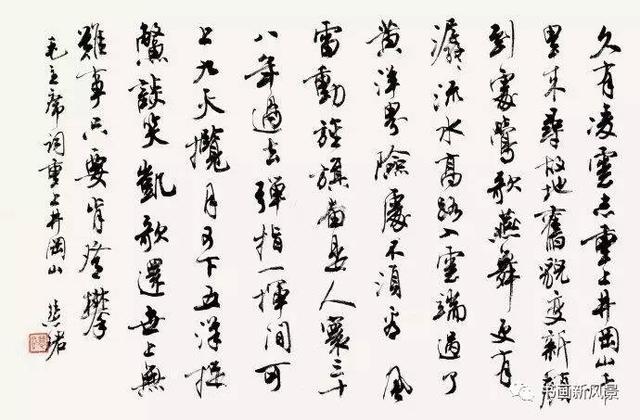 久有凌雲志重上井岡山千
里来尋故地舊貌變新顔
到處鶯歌燕舞更有
潺〻流水高路入雲端過了
黄洋界險處不須看風
雷動旌旗奮是人寰三十
八年過去彈指一揮間可
上九天攬月可下五洋捉
鱉談笑凱歌還世上無
難事只要肯登攀
毛主席詞重上井岡山 慧珺
书画新风景